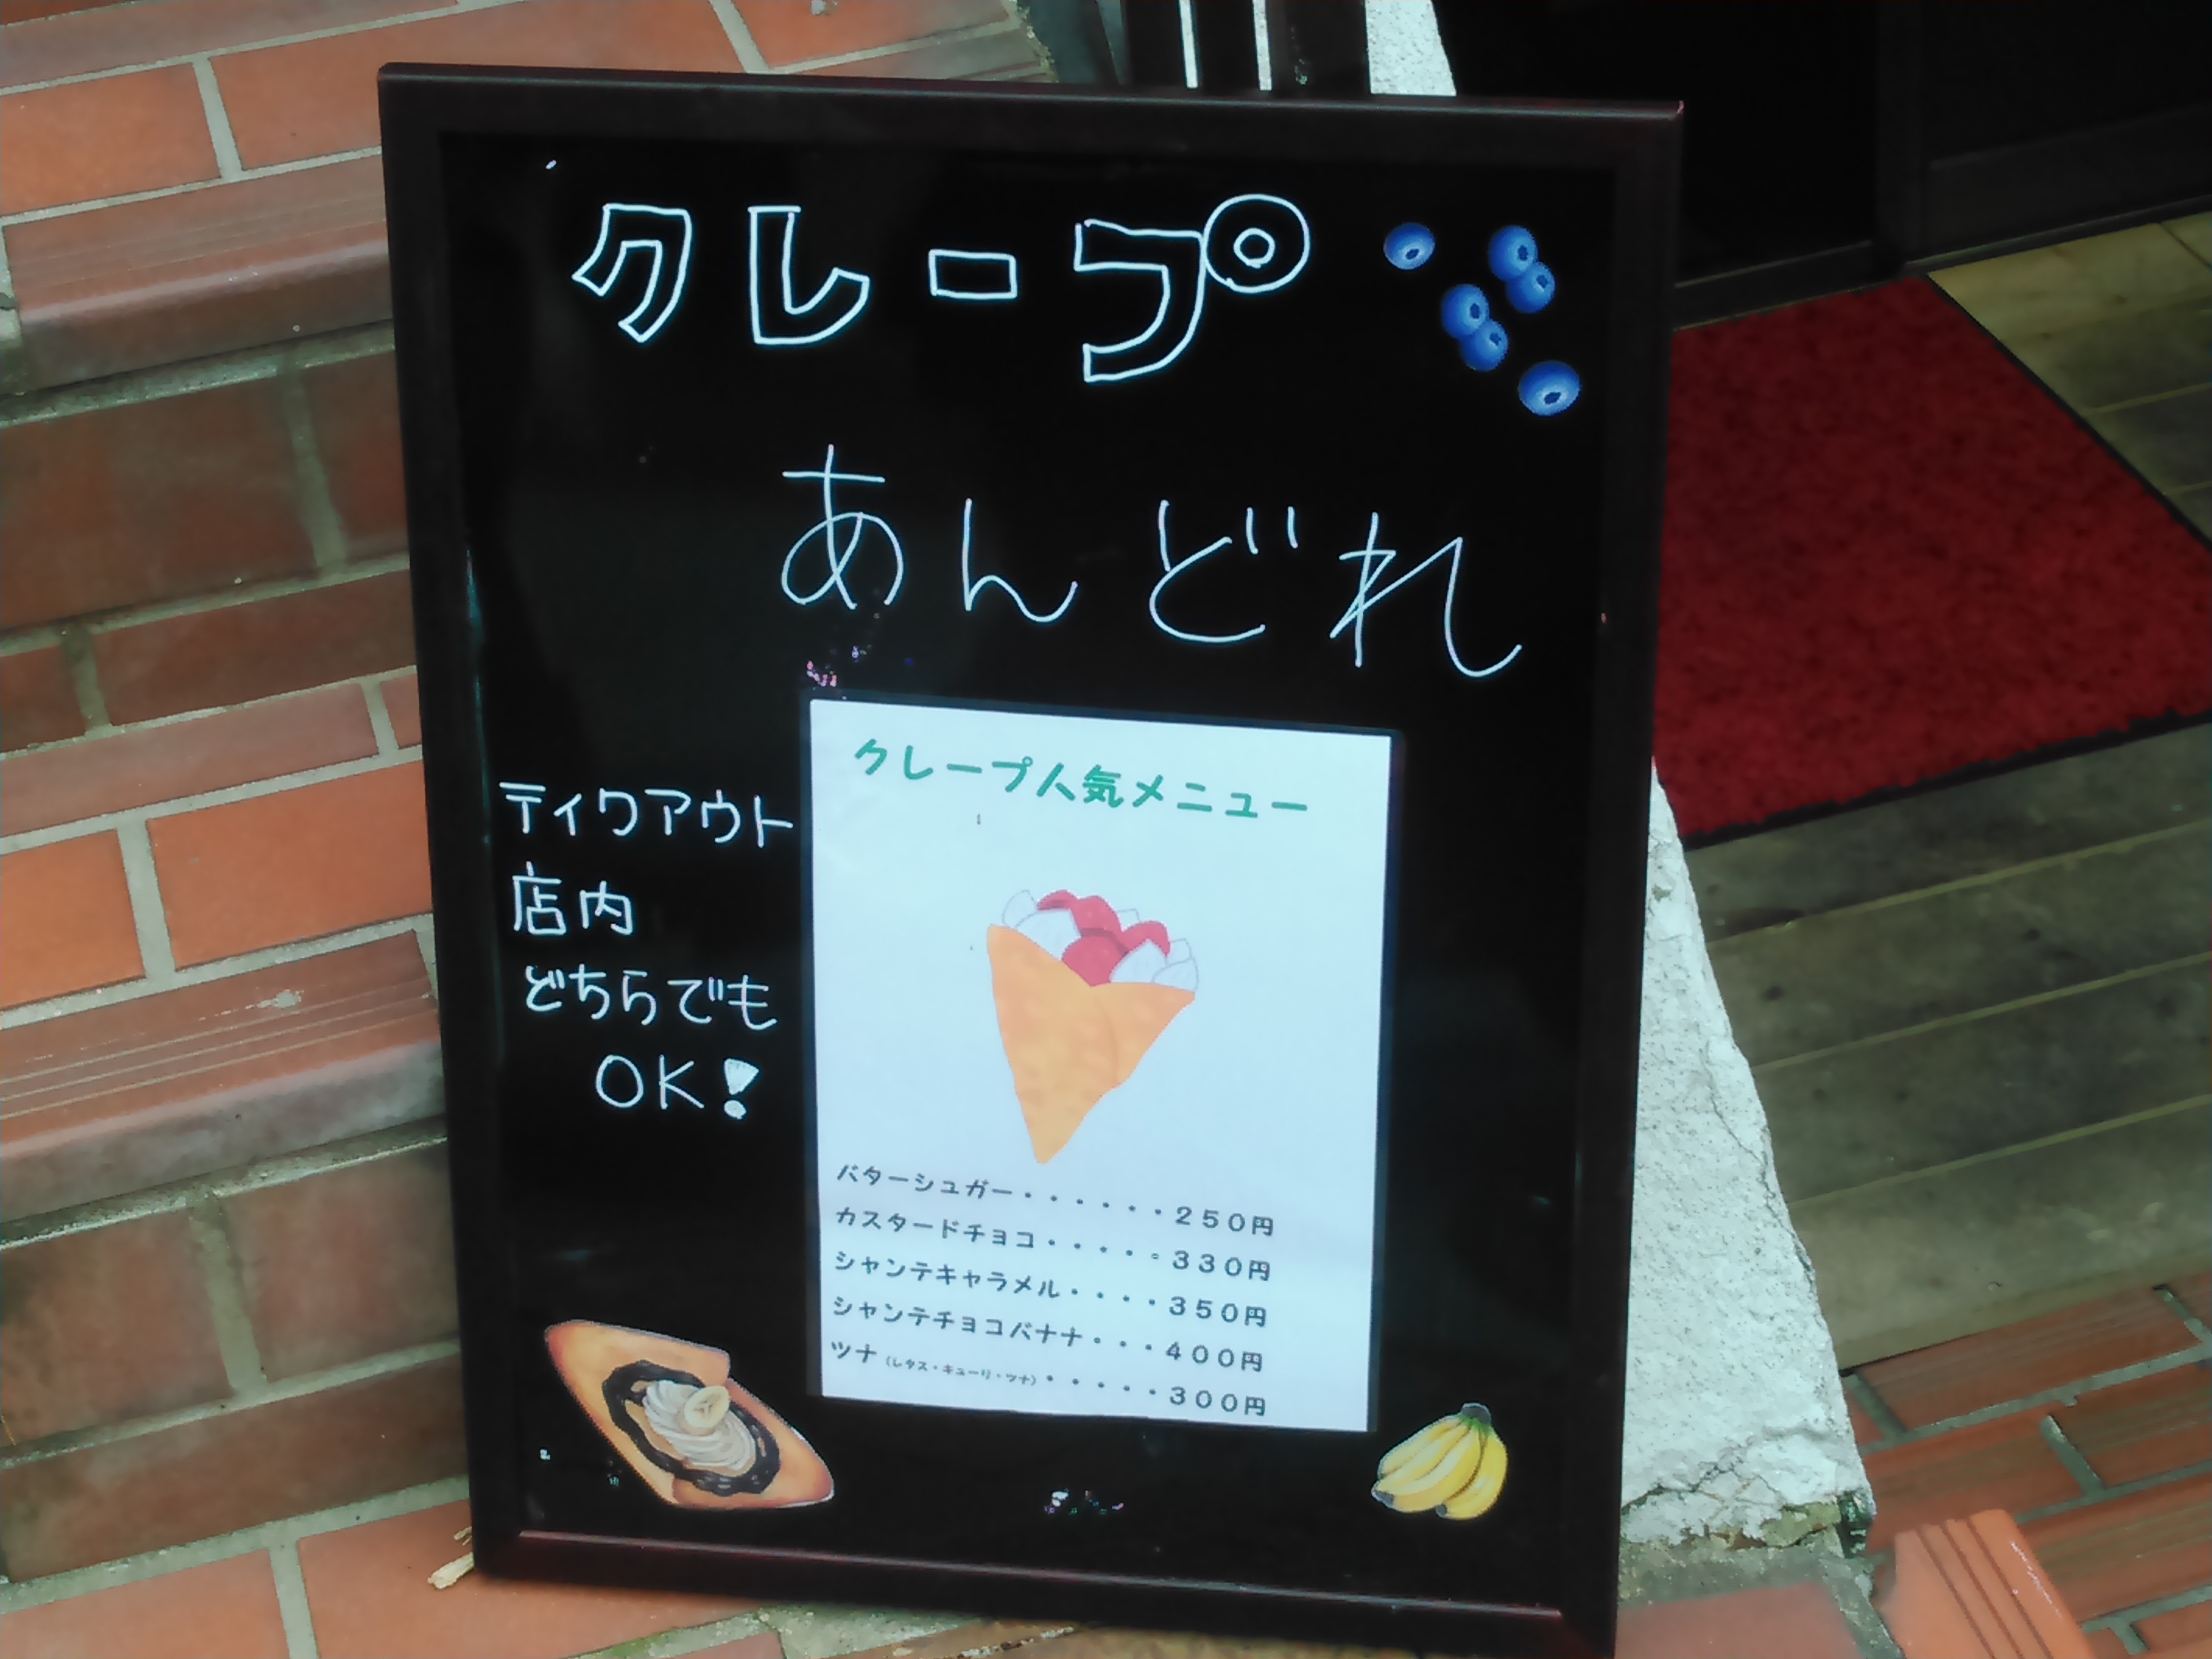 クレープ
あんどれ
テイクアウト
店内
どちらでも
OK!
クレープ人気メニュー
バターシュガー・・・・・・250円
カスタードチョコ・・・・・330円
シャンテキャラメル・・・・350円
シャンテチョコバナナ・・・400円
ツナ(レタス・キューリ・ツナ)・・・・・300円